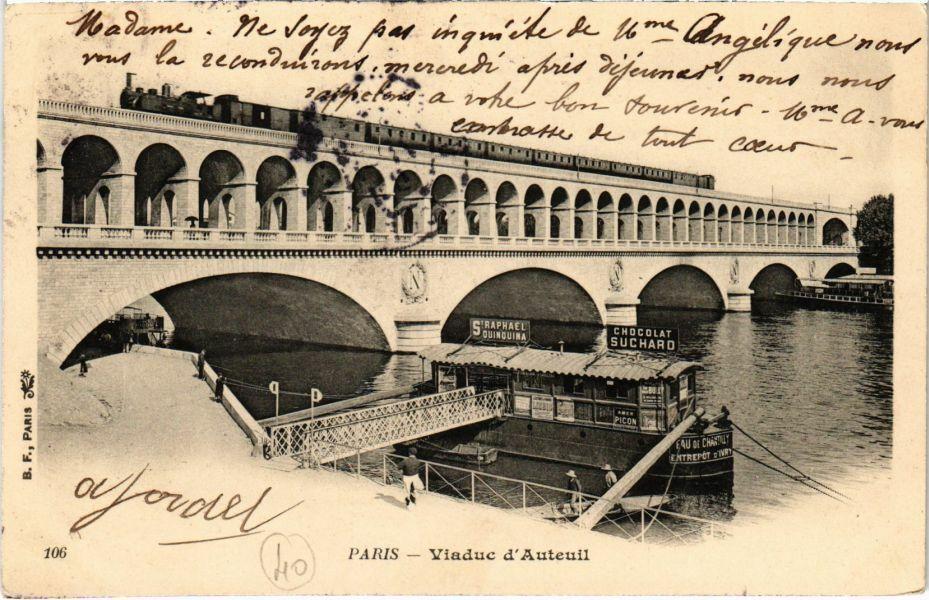 Madame. Ne soyez pas inquiète de Mme Angélique nous
vous la reconduirons, mercredi après déjeuner, nous nous
rappelons a votre bon souvenir - Mme A. vous
embrasse de tout coeur -
St RAPHAEL
QUINQUINA
CHOCOLAT
SUCHARD
AMER
PICON
EAU DE CHANTILLY
ENTREPÔT D'IVRY
B. F., PARIS
106
40
PARIS - Viaduc d'Auteuil